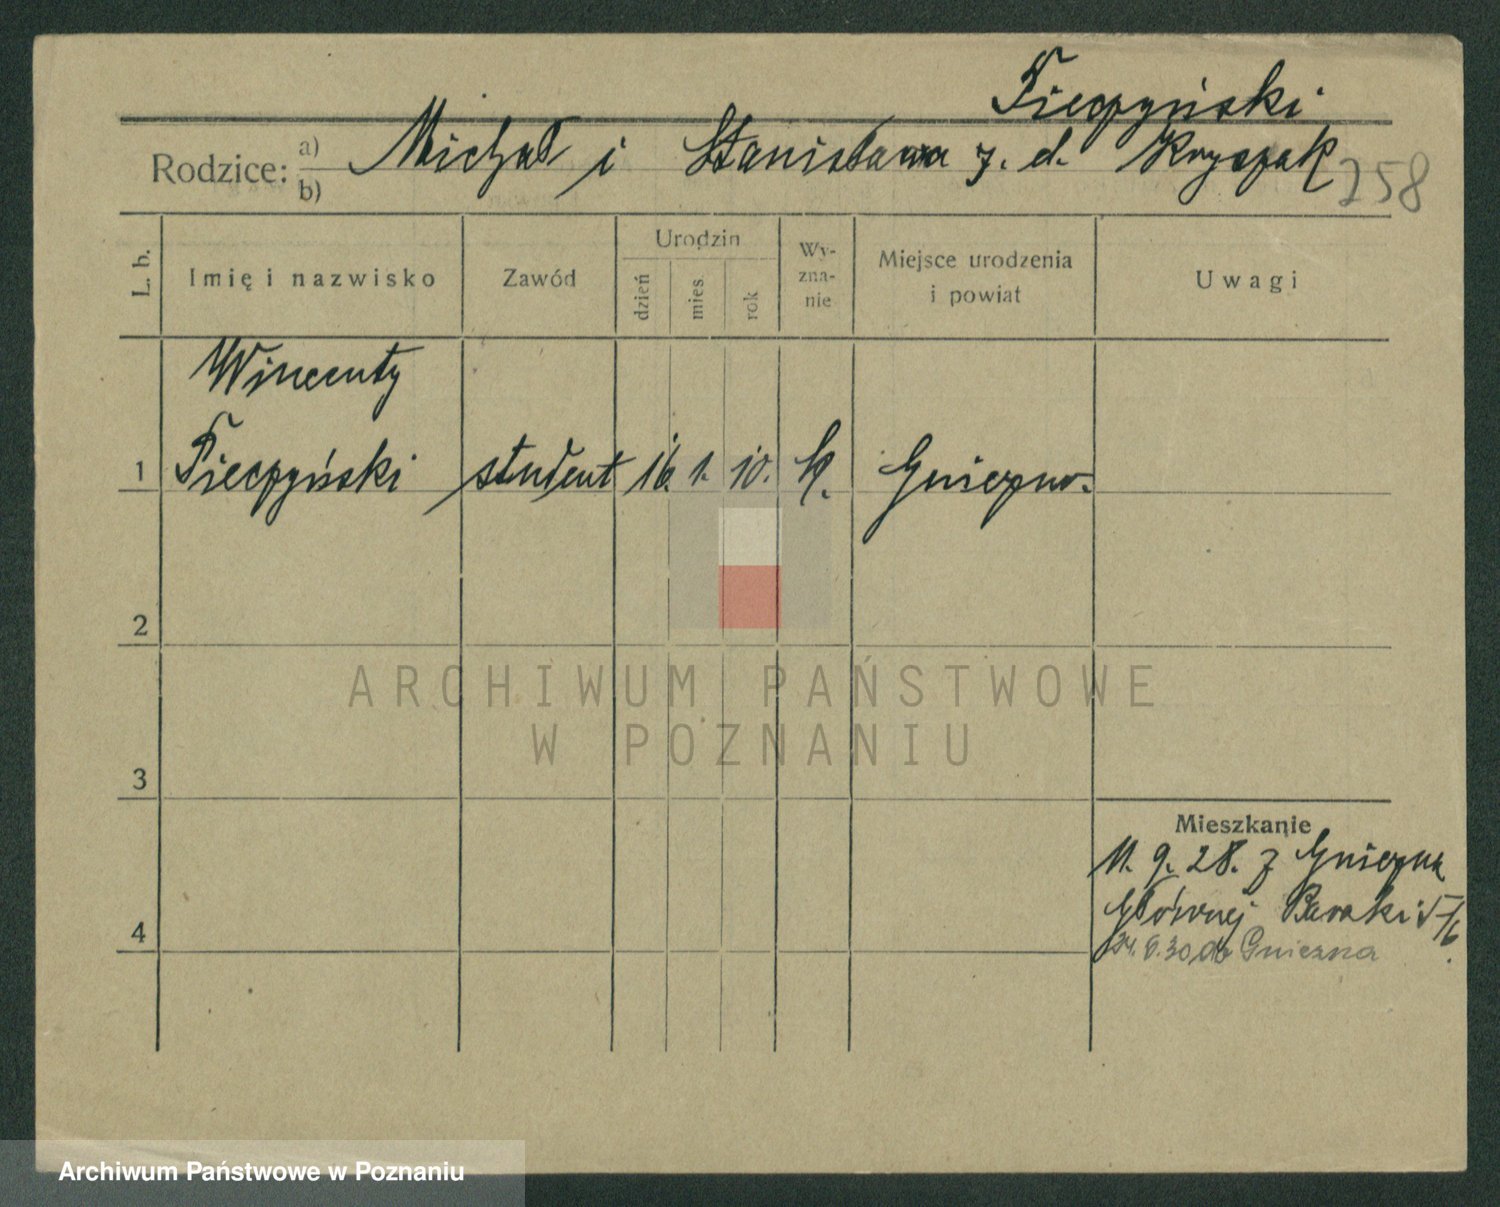 Pieczyński
Rodzice: a) b) Michał i Stanisława z. d. Kryszak
258
L. b.
Imię i nazwisko
Zawód
Urodzin
dzień
mies.
rok
Wy-
zna-
nie
Miejsce urodzenia
i powiat
Uwagi
Wincenty
1 Pieczyński student 16. 1. 10. k. Gniezno.
2
3
4
ARCHIWUM PAŃSTWOWE
W POZNANIU
Mieszkanie
11. 9. 28. z Gniezna
Główna Baraki
24. 6. 30 do Gniezna
Archiwum Państwowe w Poznaniu